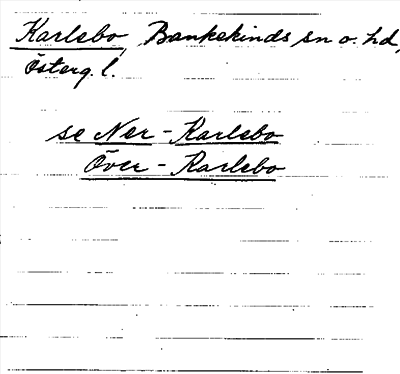 Karlebo, Bankekinds sn o. hd,
Österg. l.
se Ner - Karlebo
Över - Karlebo